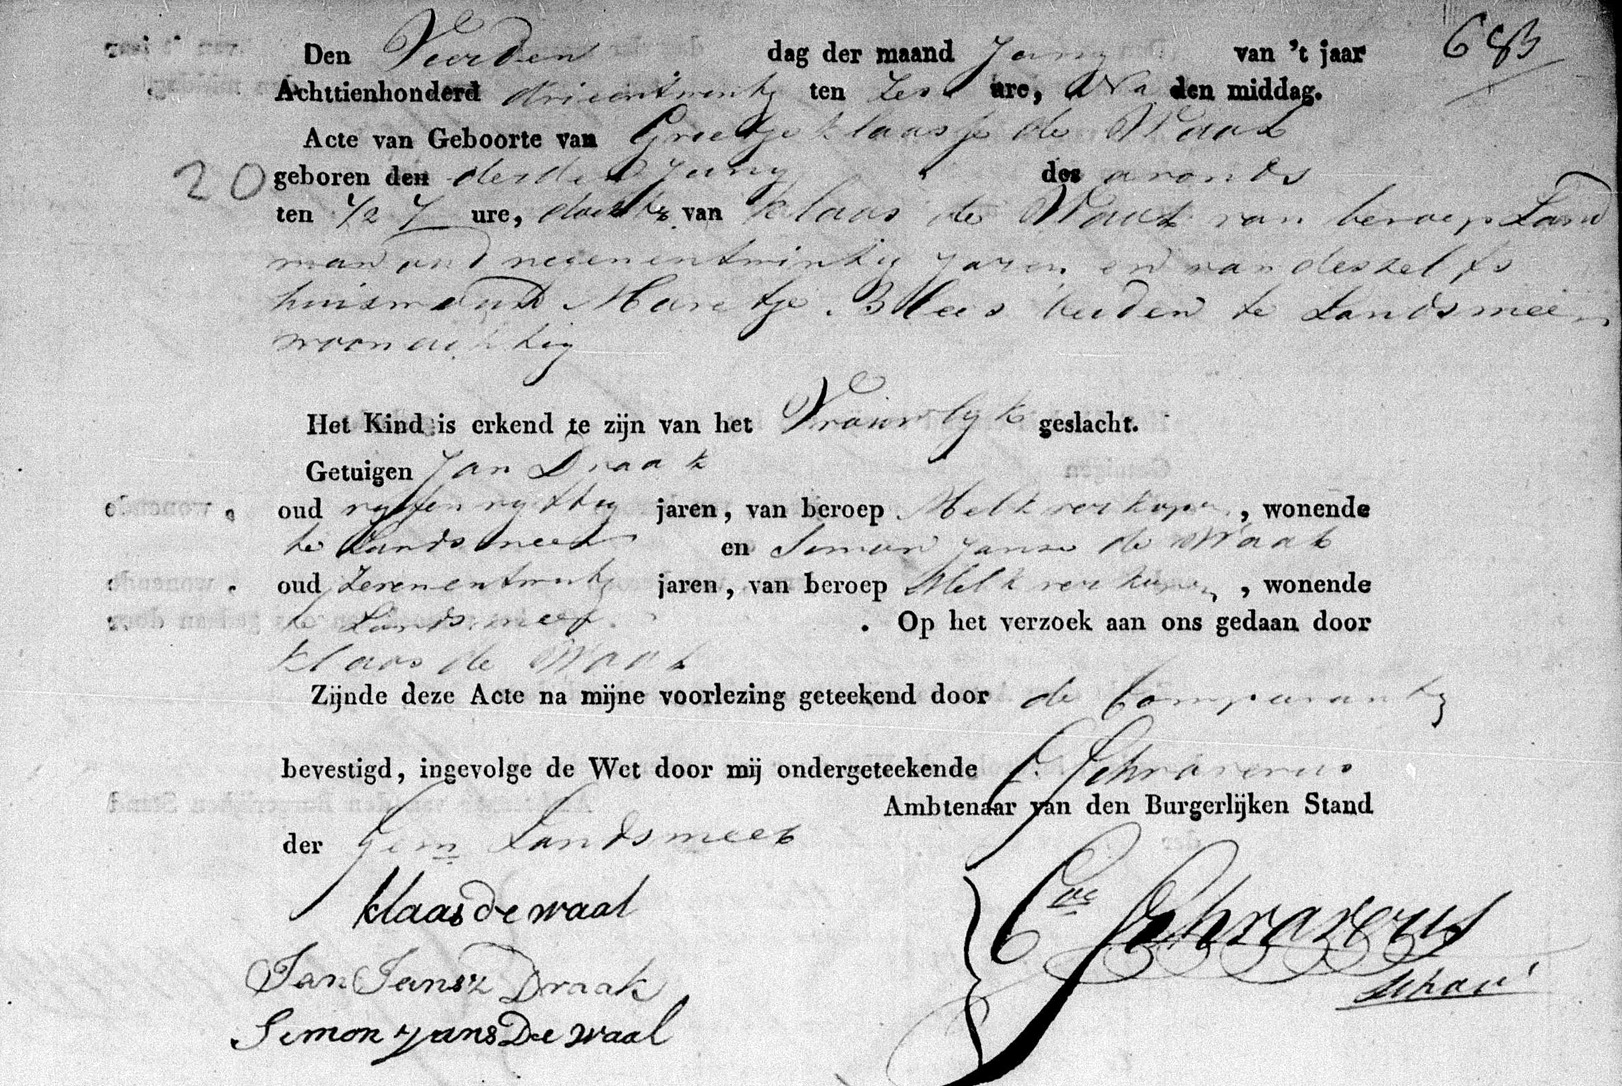 683
Den Vierden dag der maand Juny van 't jaar
Achttienhonderd drieentwintig ten zes ure, Na den middag.
Acte van Geboorte van Grietje Klaasje de Waal
20 geboren den derden Juny des avonds
ten 1/2 7 ure, dochter van Klaas de Waal van beroep Land
man oud negenentwintig jaren en van deszelfs
huisvrouw Maretje Blees beiden te Landsmeer
woonachtig
Het Kind is erkend te zijn van het Vrouwlyk geslacht.
Getuigen Jan Draak
oud vyfenvyftig jaren, van beroep Melkverkoper, wonende
te Landsmeer en Simon Janse de Waal
oud zevenentwintig jaren, van beroep Melkverkoper, wonende
te Landsmeer. Op het verzoek aan ons gedaan door
Klaas de Waal
Zijnde deze Acte na mijne voorlezing geteekend door de Comparant
bevestigd, ingevolge de Wet door mij ondergeteekende C. Schraverus
Ambtenaar van den Burgerlijken Stand
der Gem Landsmeer
klaas de waal
Jan Jansz Draak
Simon Jans De waal
Schraverus